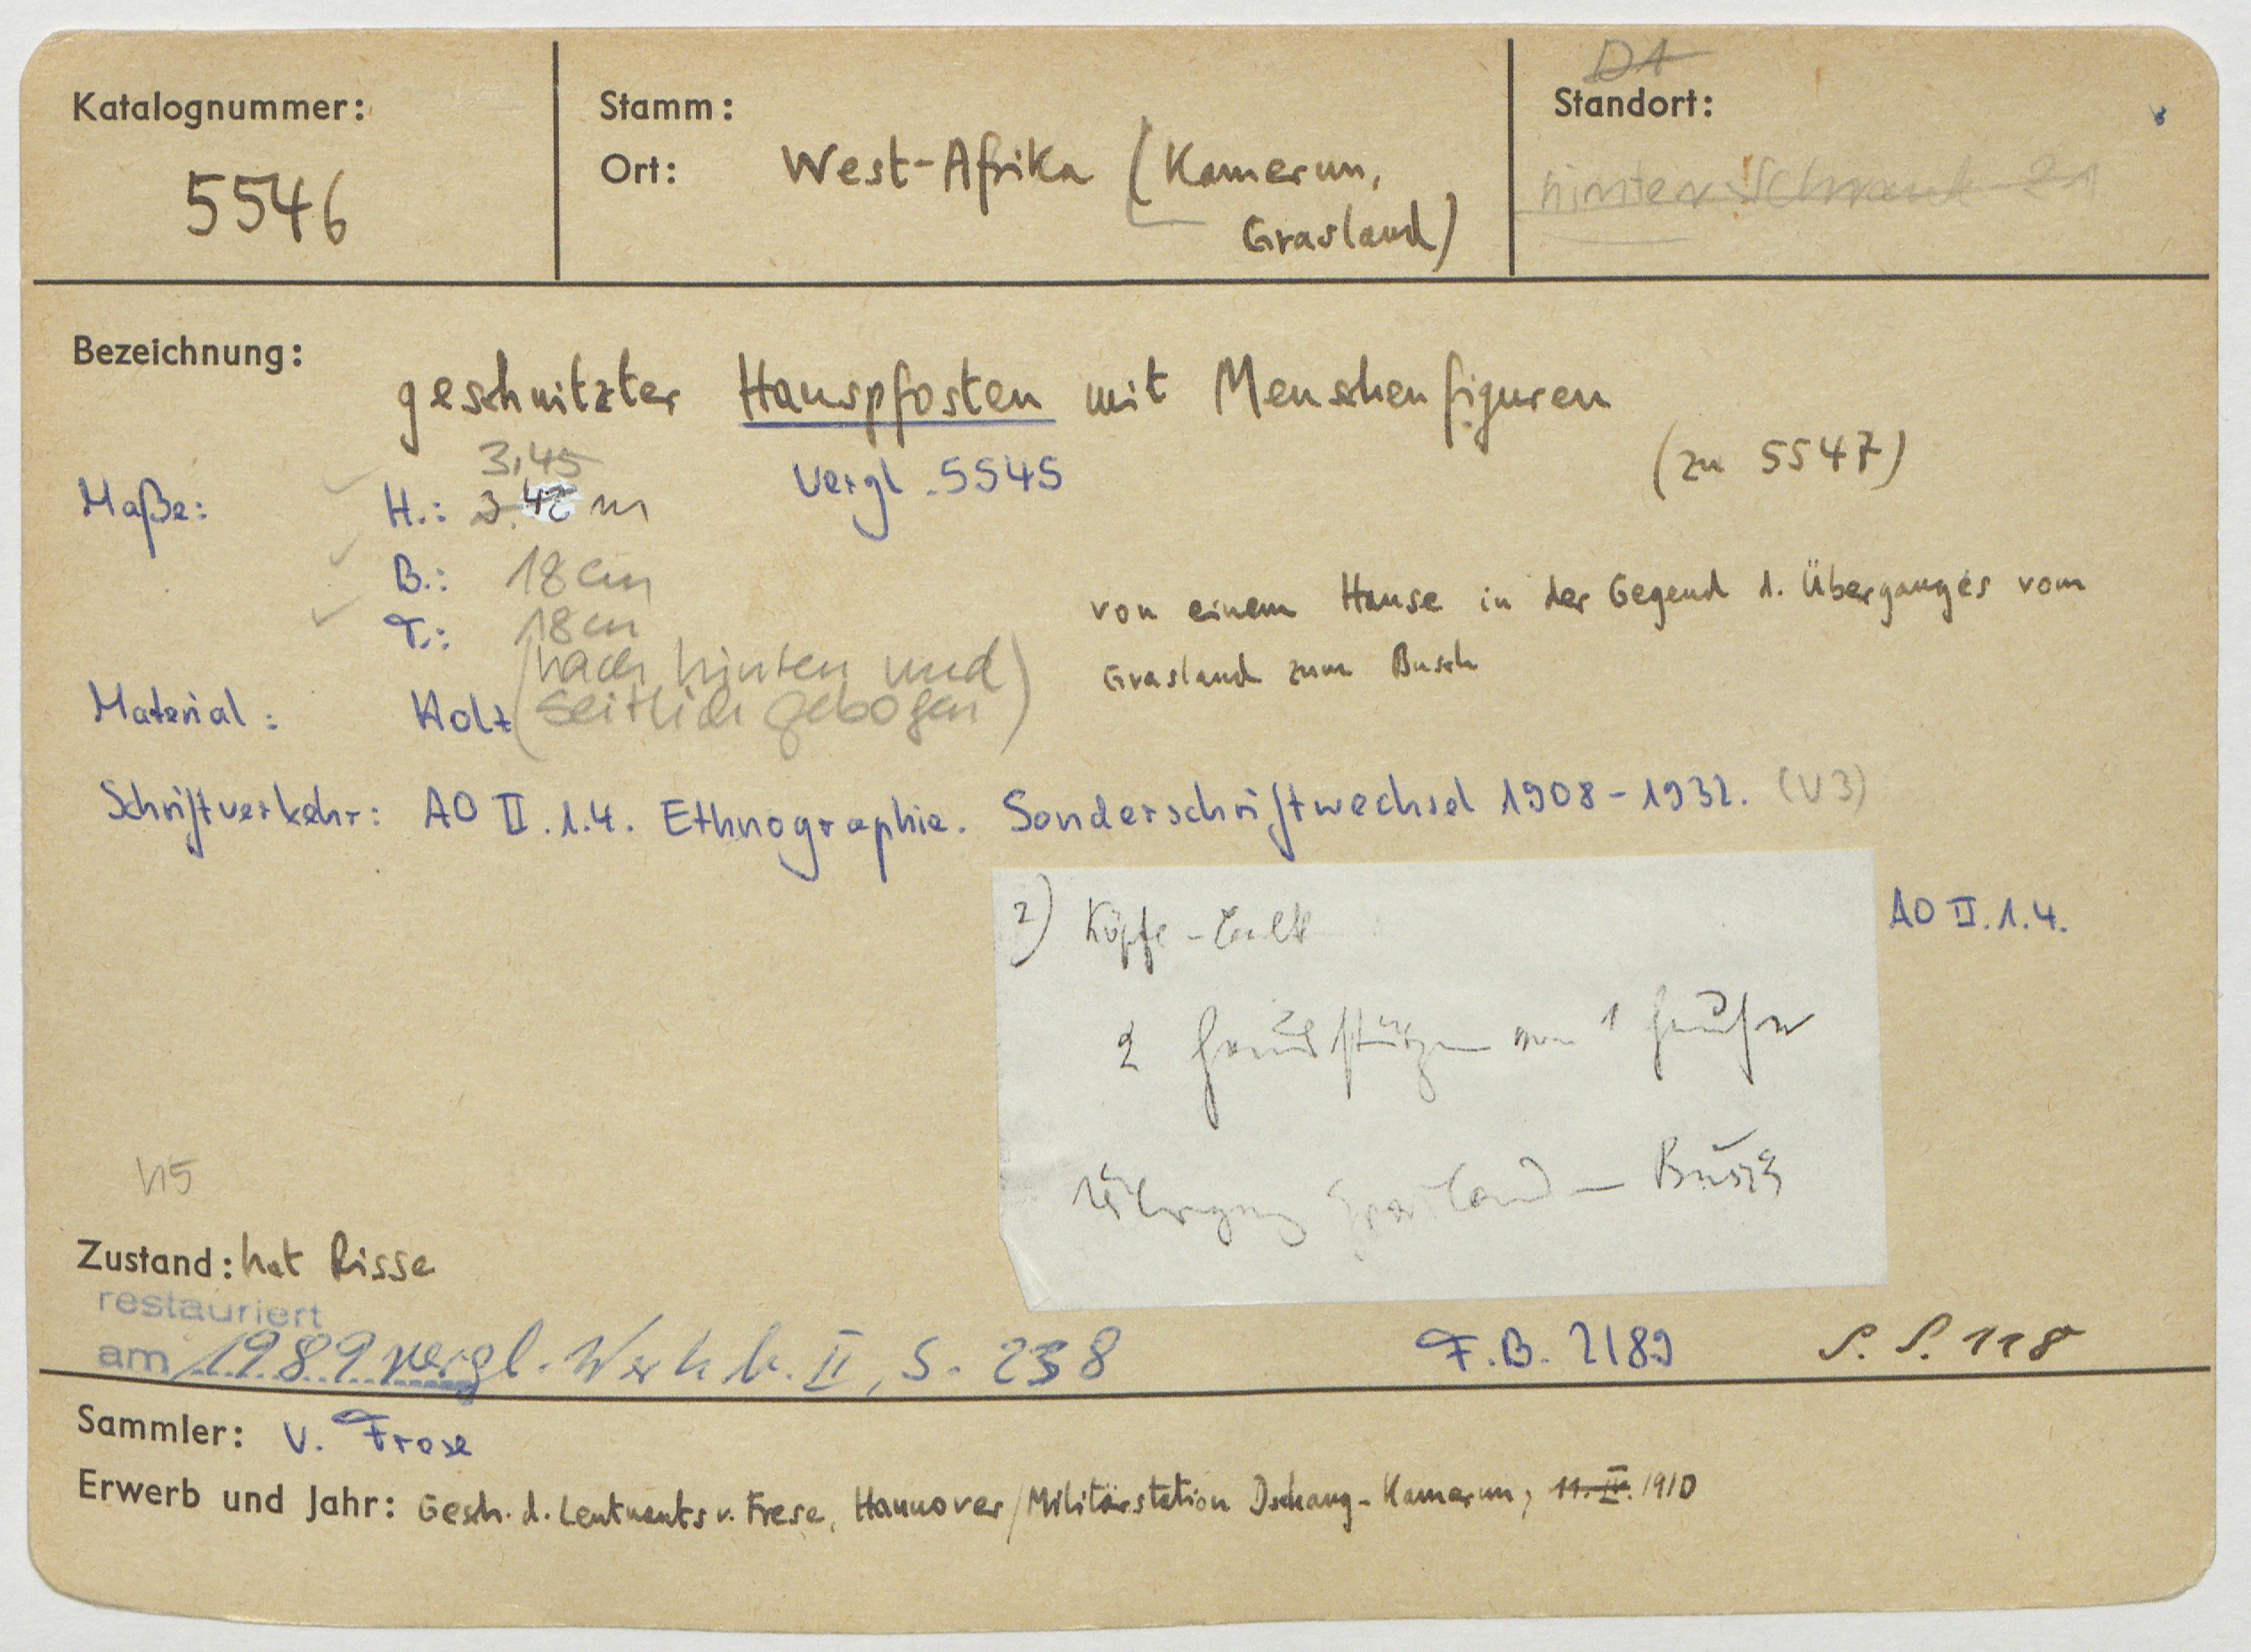 Katalognummer:
5546
Stamm:
Ort: West-Afrika (Kamerun,
Grasland)
D1
Standort:
hinter Schrank 21
Bezeichnung:
geschnitzter Hauspfosten mit Menschenfiguren
(zu 5547)
Vergl. 5545
Maße:
3,45
H.: 3.42 m
B.: 18 cm
T.: 18 cm
(nach hinten und
seitlich gebogen)
von einem Hause in der Gegend d. Überganges vom
Grasland zum Busch
Material: Holz
Schriftverkehr: AO II.1.4. Ethnographie. Sonderschriftwechsel 1908-1932. (V3)
2) Köpfe-
2 Hausstützen von 1 Hause
Übergang Grasland - Busch
AO II.1.4.
h5
Zustand: hat Risse
restauriert
am 1989 vergl. Werkb. II, S. 238
F.B. 2189
S. S. 118
Sammler: v. Frese
Erwerb und Jahr: Gesch. d. Leutnants v. Frese, Hannover/Militärstation Dschang-Kamerun, 11. IV. 1910